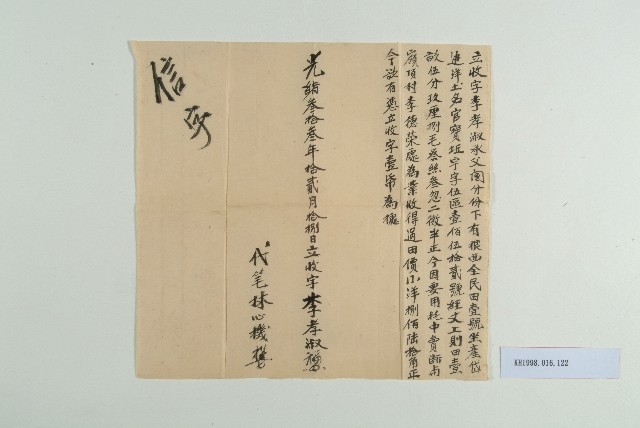 立收字李孝淑承父鬮分份下有根面全民田壹號坐產岱
連洋土名官寶坵字字伍區壹佰伍拾貳號經丈上則田壹
畝伍分玖厘捌毛叁絲叁忽二微半正今因要用托中賣斷與
嶺頂村李德榮處為業收得過田價小洋捌佰陸拾角正
今欲有憑立收字壹紙為據
光緒叁拾叁年拾貳月拾捌日立收字李孝淑
代笔林心機
信字
KH1998.016.122